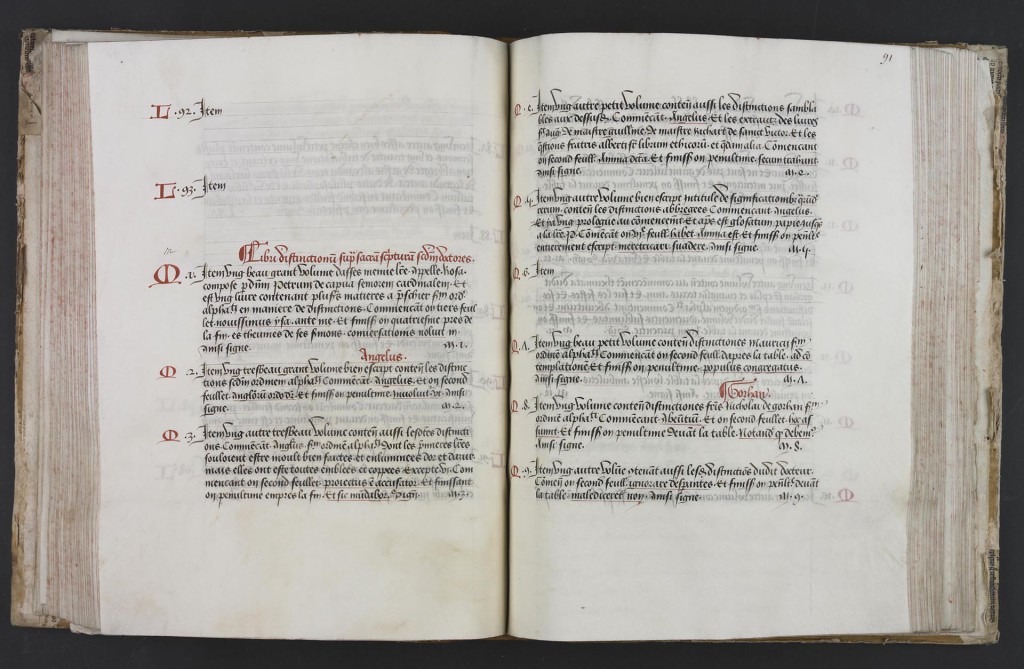 L .92. Item
L .93. Item
Libri distinctionu sup sacra scptura scdm doctores.
M .1. Item Ung beau grant volume dasses menue lre. Apelle. Rosa.
compose p dnm petrum de capua seniorem cardinalem. Et
est ung livre contenant plusrs matieres a pscher sm ord.
alphati en maniere de distinctions. Commencant ou tiers feul
let. novissimus ysa. ante me. Et finiss ou quatriesme pres de
la fin. es theumes de ses smons. conversationis noluit in.
Ainsi signe. M.1.
Angelus.
M .2. Item Ung tresbeau grant volume bien escript conten les distinc
tions scdm ordinem alphati Commecat. Angelus. et ou second
feullet. Et finiss ou penultime. Ainsi
signe. M.2.
M .3. Item Ung autre tresbeau volume conten aussi lesdites distincti
ons Commecat. Anglus. sm ordine alphati dont les pmieres lres
souloient estre moult bien faictes et enluminees dor et dazur.
mais elles ont este toutes emblees et coppees. Excepte Com
mencant ou second feullet. proiectus e accusator. Et finissant
ou penultime empres la fin. Et sic M.3.
91
M Item Ung autre petit volume conten aussi les distinctions sambla
bles aux dessusd. Commecat. Angelus. Et les extrautz des livres
s Aug. de maistre guillme. de maistre Richart de sanct victor. Et les
qstions fratris alberti sr librum ethicoru. et qdam alia. Comencant
ou second feull. Anima Et finiss ou penultime. secum trahunt.
Ainsi signe.
M Item Ung autre volume bien escript intitule de significationibz
rerum. conten les distinctions abbregees Commencant. Angelus.
Et ya ung prologue au comencemt. Et apres est glosatum papie jusqs
a la lre Commecat ou feull. habet. Anima est. Et finiss ou penlt
entierement escript. meretricari suadere. Ainsi signe.
M .6. Item
M Item Ung beau petit volume conten distinctiones mauricii sm
ordine alphati Commencant ou second feull. dapres la table. ad
templatione. Et finiss ou penultime. populus congregatus.
Ainsi signe.
Gorhan.
M .8. Item Ung volume conten distinctiones fris Nicholai de gorhan sm
ordine alphati Commecant. Abeuntium. Et ou second feullet. hoc
sunt. Et finiss ou penultime devat la table. Notand q debem.
Ainsi signe. M.8.
M .9. Item Ung autre volue contenat aussi lesd. distinctios dudit docteur.
Comen ou second feull. ignorare Et finiss ou penlt. devat
la table. malediceret non. Ainsi signe. M.9.